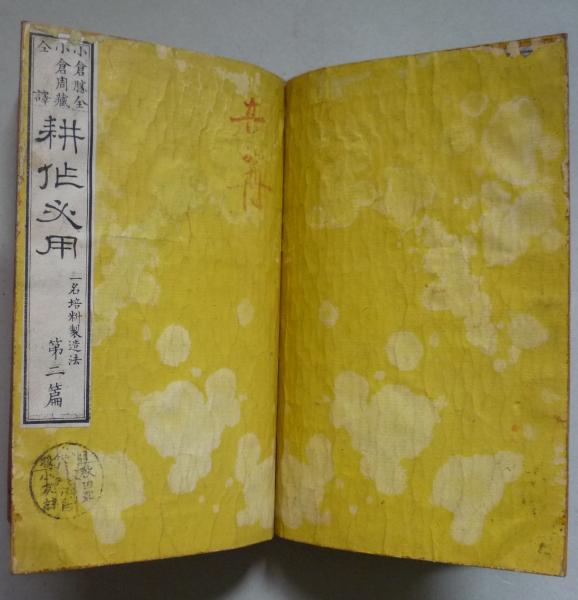 小倉勝全
小倉周藏
全譯
耕作必用
一名培料製造法
第二篇
共